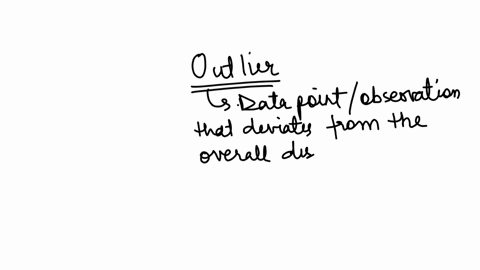 Outlier
↳ Data point/observation
that deviates from the
overall dis